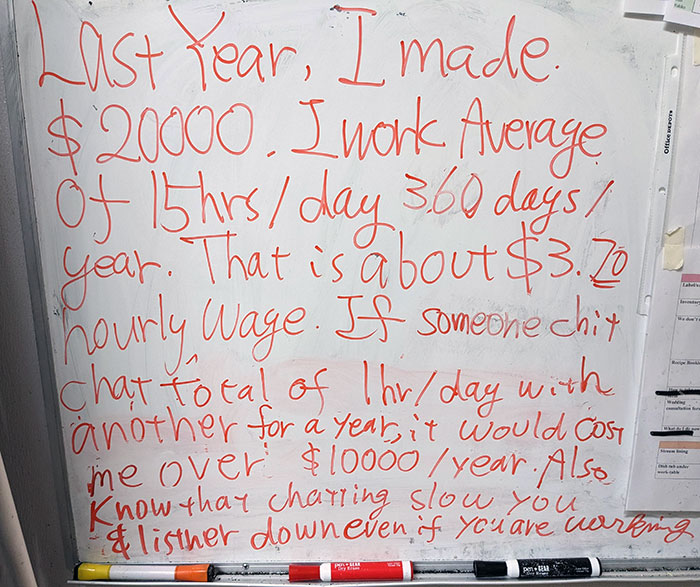 Last Year, I made.
$20000. I work Average
of 15hrs/day 360 days/
year. That is about $3.70
hourly Wage. If someone chit
chat total of 1hr/day with
another for a year, it would cost
me over $10000/year. Also
Know that chatting slow you
& listner down even if you are working
Office DEPOT
Label/
Inventory
We don't
Recipe
Wedding
consultation
Dish tub under
work table
pen+GEAR
Dry Erase
pen+GEAR
Dry Erase